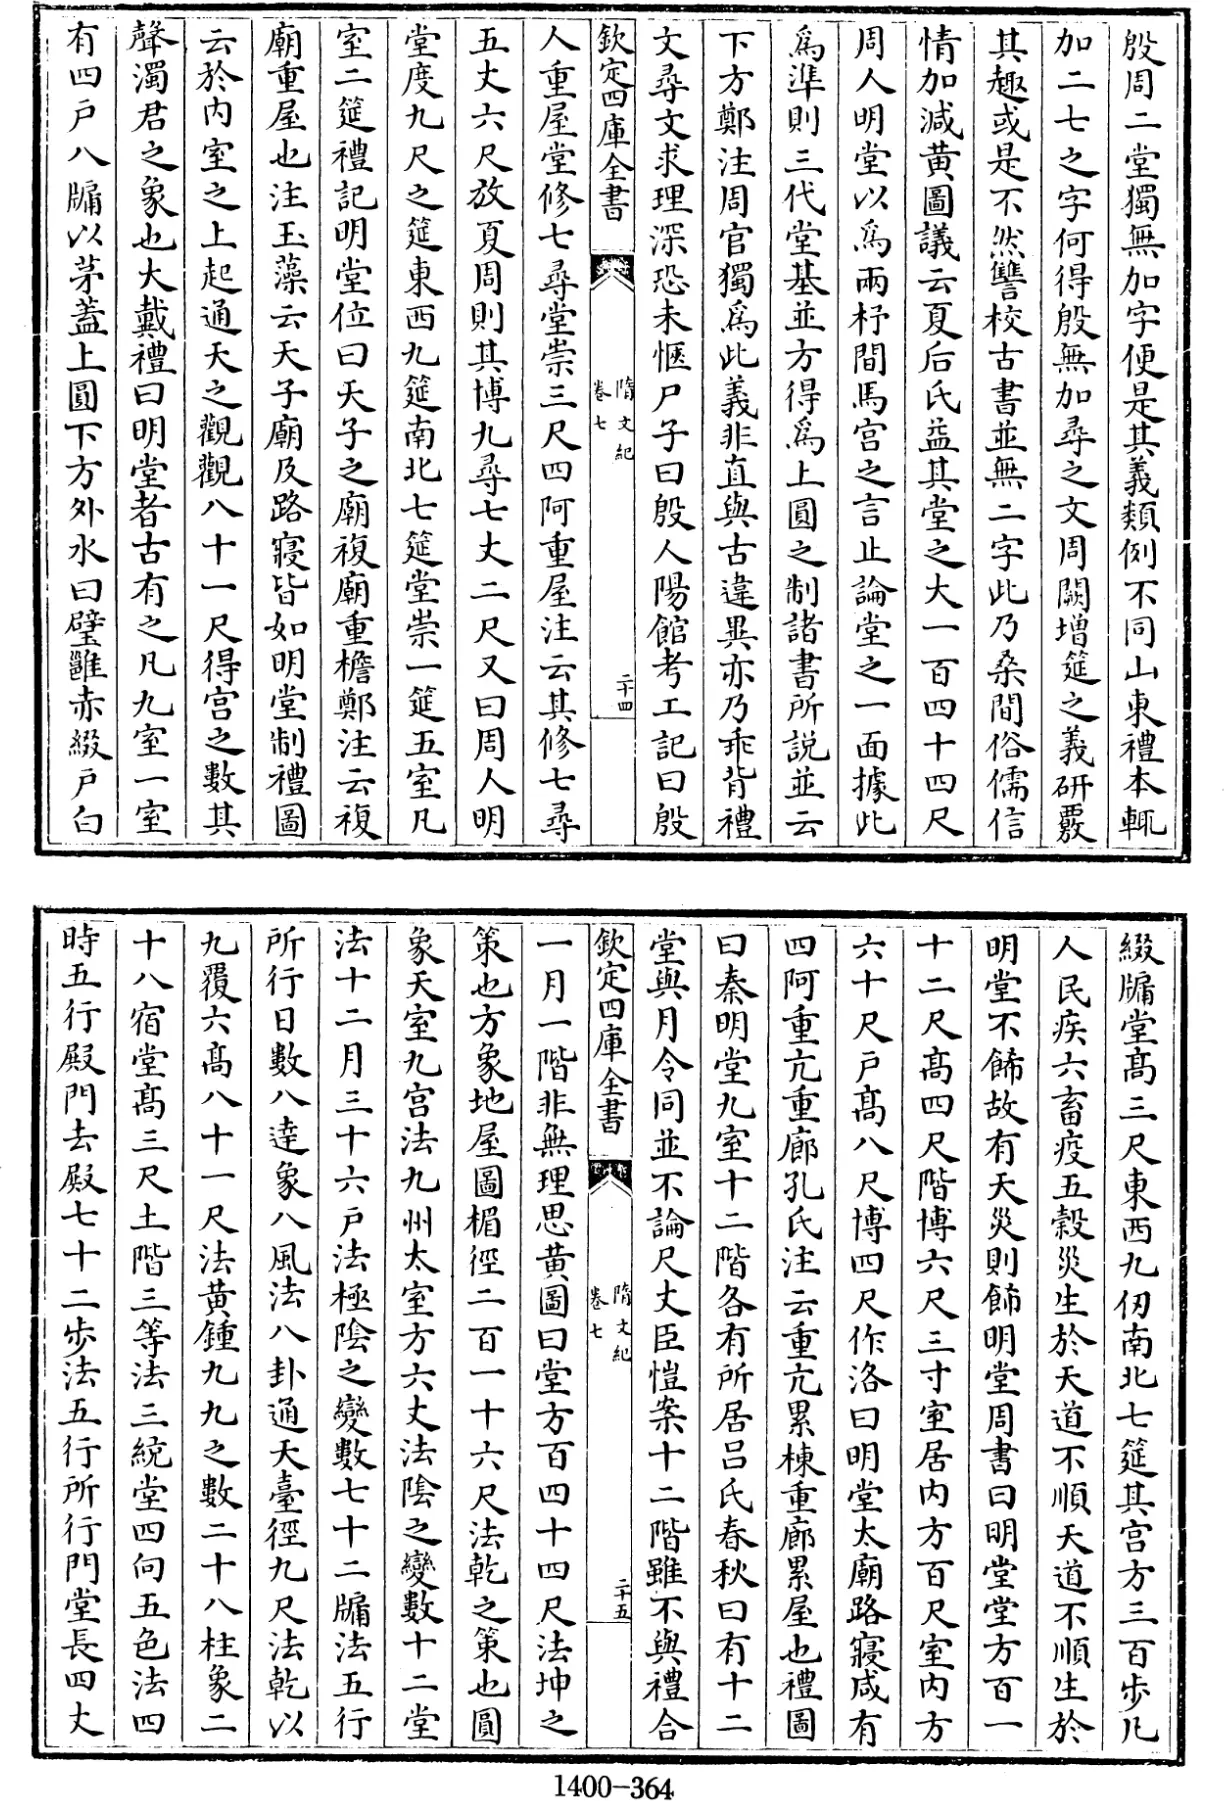 殷周二堂獨無加字便是其義類例不同山東禮本輒
加二七之字何得殷無加尋之文周闕增筵之義研覈
其趣或是不然讐校古書並無二字此乃桑間俗儒信
情加減黄圖議云夏后氏益其堂之大一百四十四尺
周人明堂以為兩杼間馬宫之言止論堂之一面據此
為準則三代堂基並方得為上圓之制諸書所説並云
下方鄭注周官獨為此義非直與古違異亦乃乖背禮
文尋文求理深恐未愜尸子曰殷人陽館考工記曰殷
欽定四庫全書
隋文紀
卷七
二十四
人重屋堂修七尋堂崇三尺四阿重屋注云其修七尋
五丈六尺放夏周則其博九尋七丈二尺又曰周人明
堂度九尺之筵東西九筵南北七筵堂崇一筵五室凡
室二筵禮記明堂位曰天子之廟複廟重檐鄭注云複
廟重屋也注玉藻云天子廟及路寢皆如明堂制禮圖
云於内室之上起通天之觀觀八十一尺得宫之數其
聲濁君之象也大戴禮曰明堂者古有之凡九室一室
有四户八牖以茅蓋上圓下方外水曰璧雝赤綴户白
綴牖堂髙三尺東西九仞南北七筵其宫方三百步凡
人民疾六畜疫五穀災生於天道不順天道不順生於
明堂不飾故有天災則飾明堂周書曰明堂堂方百一
十二尺髙四尺階博六尺三寸室居内方百尺室内方
六十尺户髙八尺博四尺作洛曰明堂太廟路寢咸有
四阿重亢重廊孔氏注云重亢累棟重廊累屋也禮圖
曰秦明堂九室十二階各有所居吕氏春秋曰有十二
堂與月令同並不論尺丈臣愷案十二階雖不與禮合
欽定四庫全書
隋文紀
卷七
二十五
一月一階非無理思黄圖曰堂方百四十四尺法坤之
策也方象地屋圖楣徑二百一十六尺法乾之策也圓
象天室九宫法九州太室方六丈法陰之變數十二堂
法十二月三十六户法極陰之變數七十二牖法五行
所行日數八達象八風法八卦通天臺徑九尺法乾以
九覆六髙八十一尺法黄鍾九九之數二十八柱象二
十八宿堂髙三尺土階三等法三統堂四向五色法四
時五行殿門去殿七十二步法五行所行門堂長四丈
1400-364